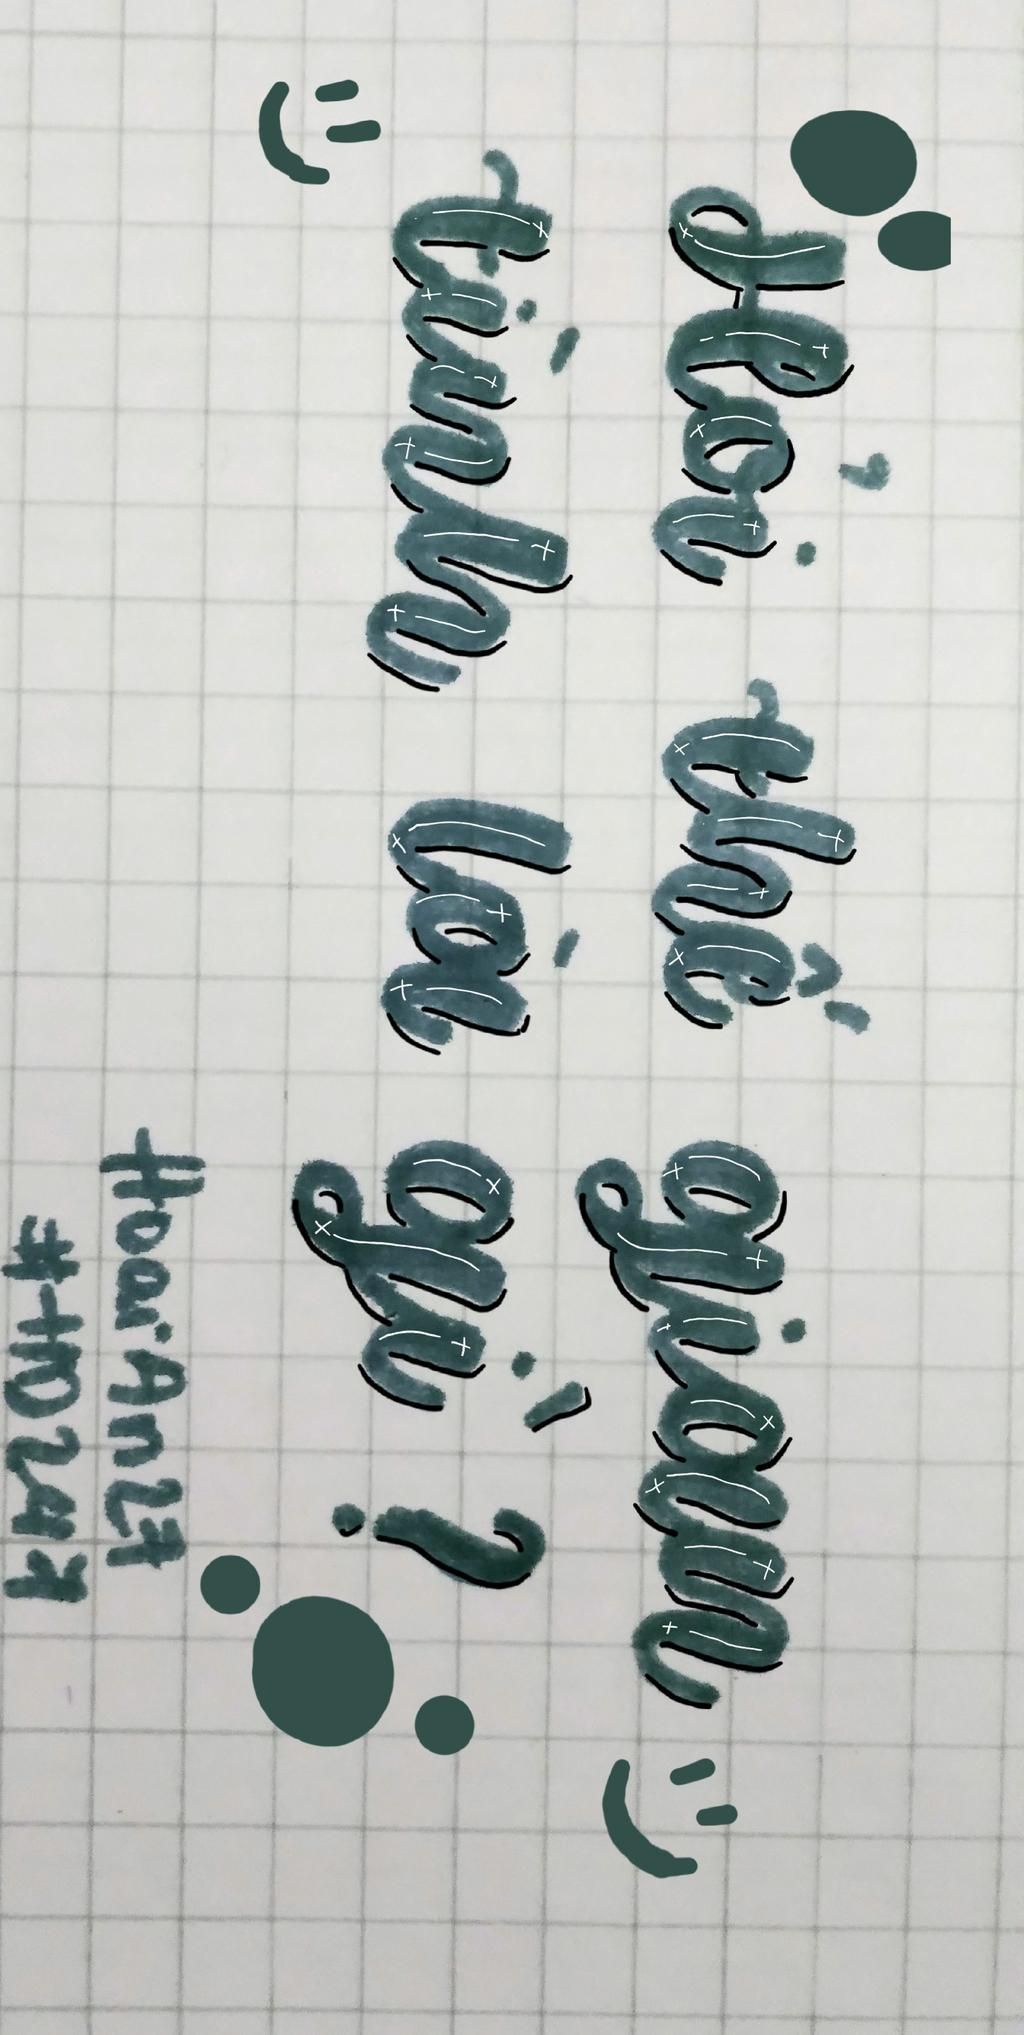 Hỏi thế gian
tình là gì ?
HoaiAn27
#HD247